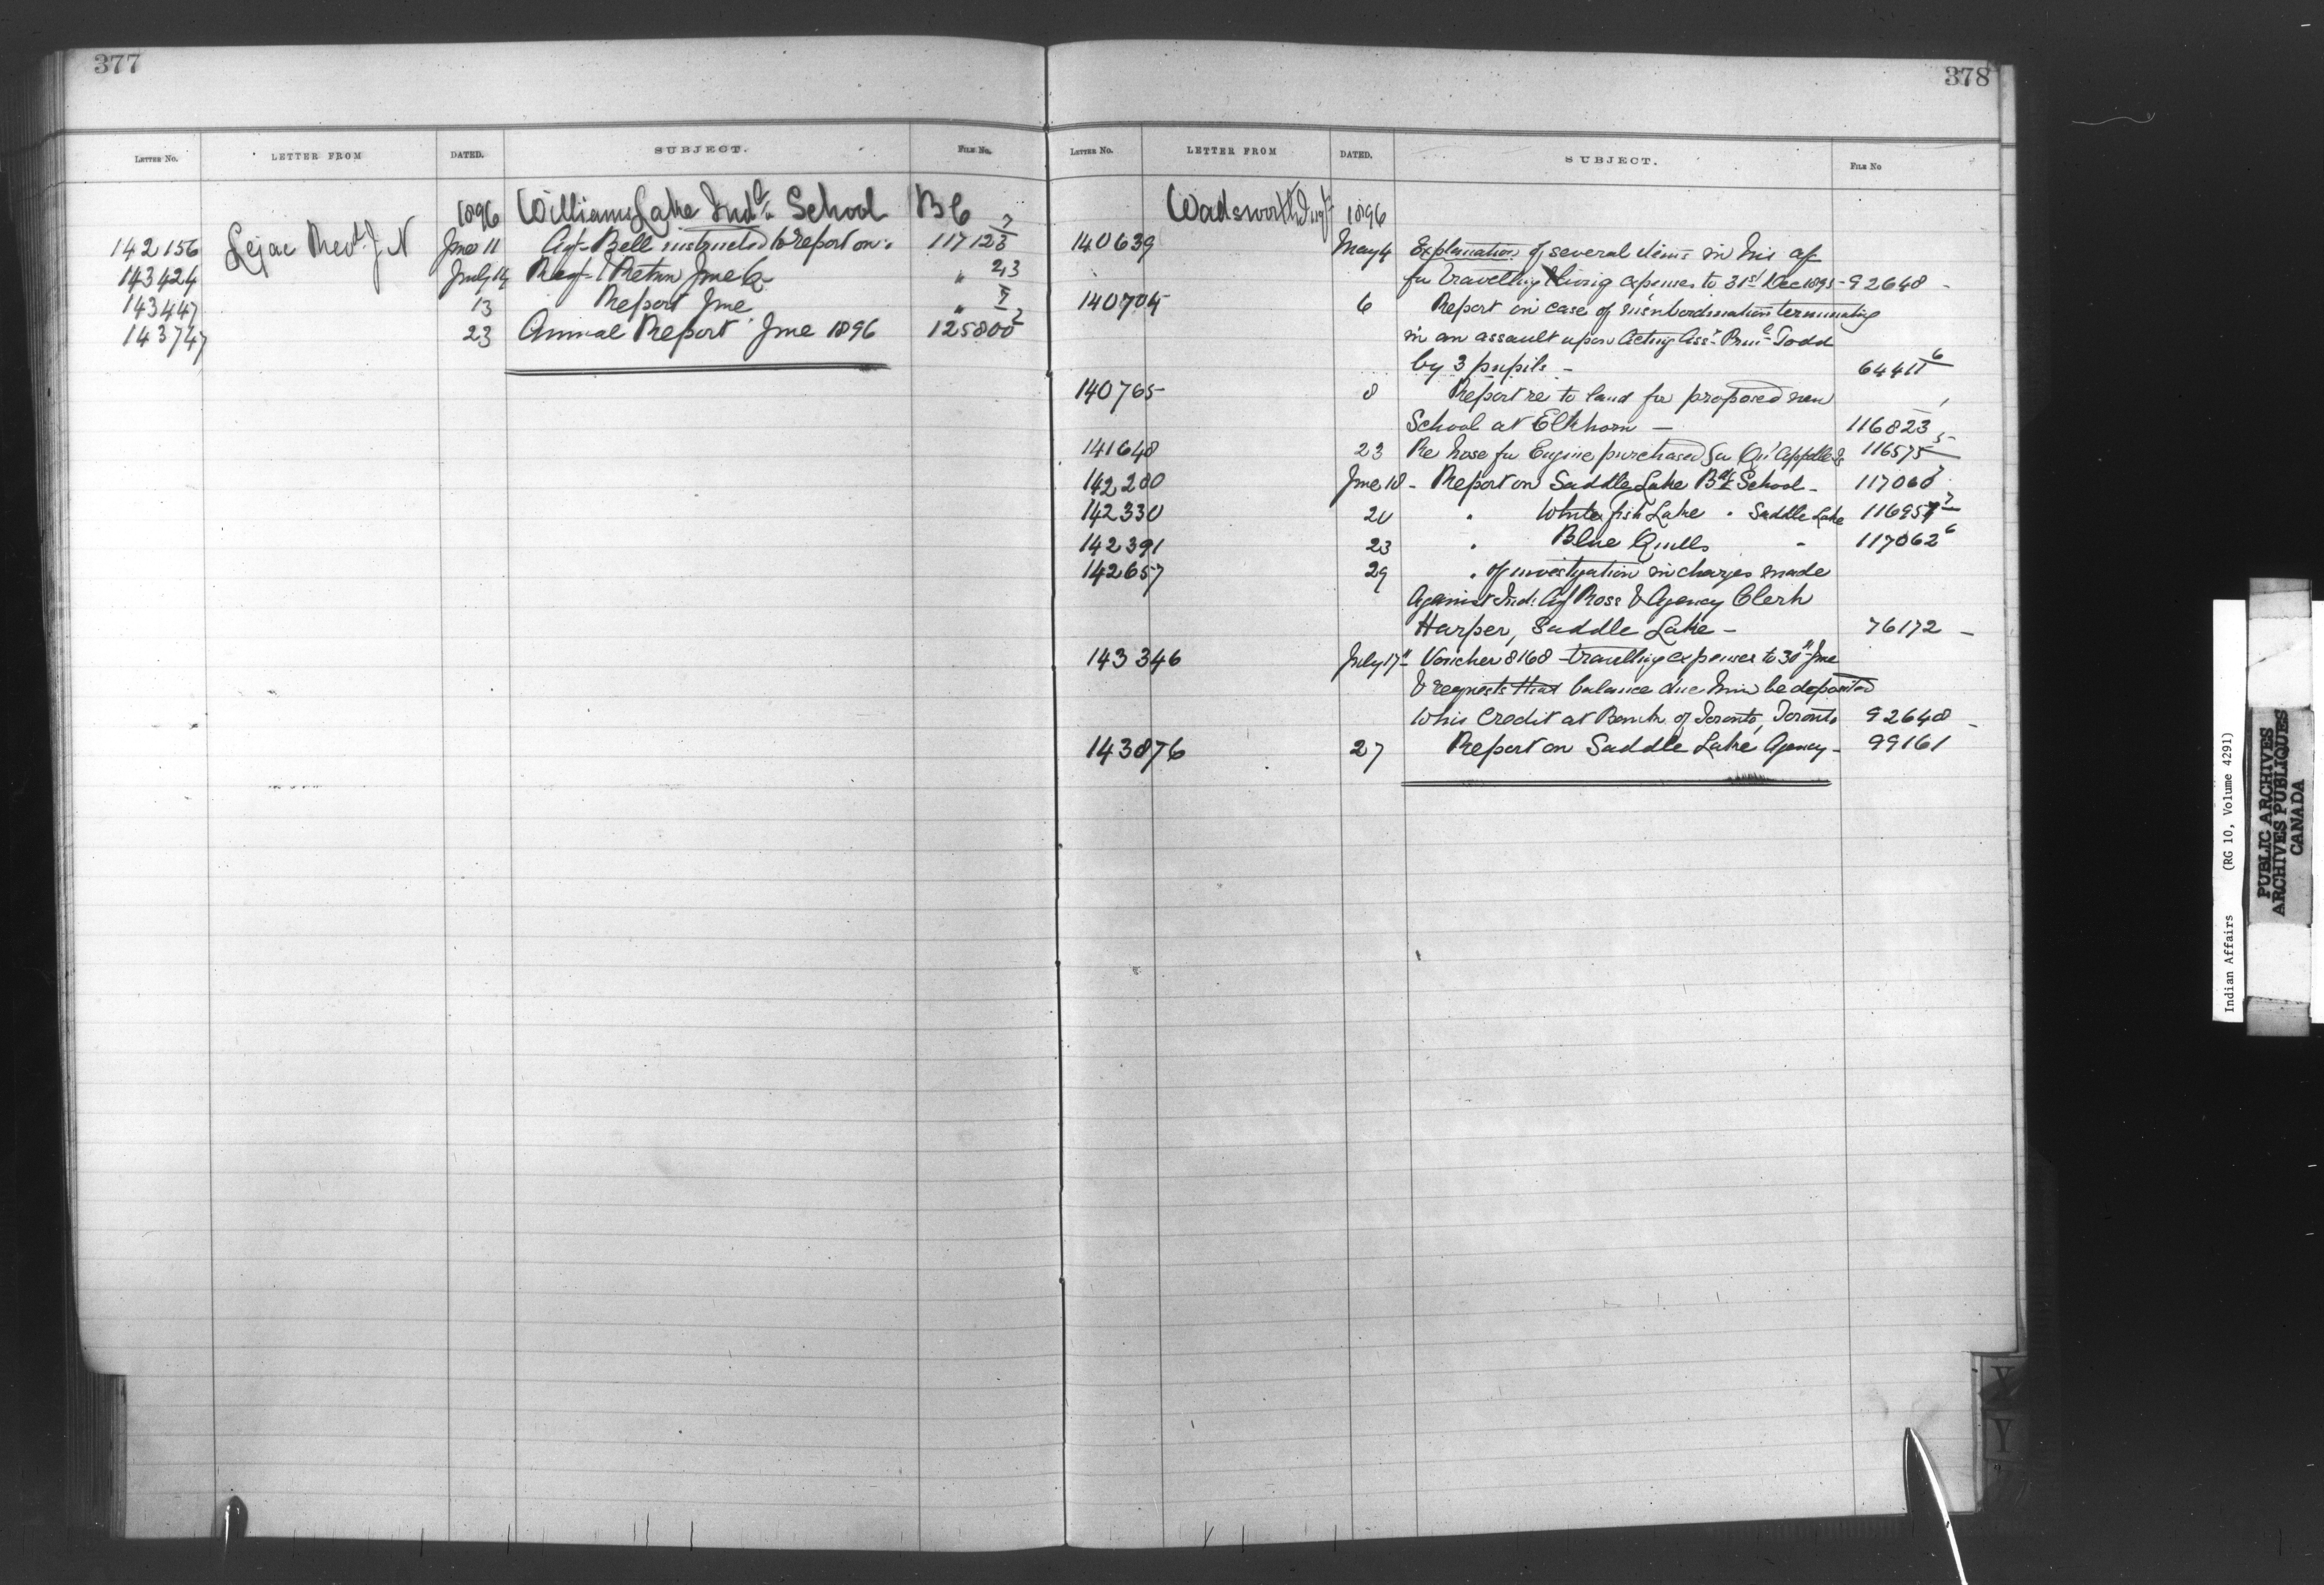 377
LETTER NO. LETTER FROM DATED. SUBJECT. FILE NO.
1896 Williams Lake Indl. School B C
142156 Lejac Revd. J N June 11 Agt. Bell instructed to report on. 117123
143424 July 14 & Return June 23
143447 13 Report June "
143747 23 Annual Report June 1896 125800 2
378
LETTER NO. LETTER FROM DATED. SUBJECT. FILE NO
Wadsworth Insp 1896
140639 May 4 Explanation of several items in his a/c
for travelling & living expenses to 31st Dec 1895 - 92648 -
140704 6 Report in case of insubordination terminating
in an assault upon Acting Asst. Prinl. Todd
by 3 pupils - 64411 6
140765 8 Report re to land for proposed new
School at Elkhorn - 116823 1
141648 23 Re hose for Engine purchased for Qu'Appelle 116575 5
142200 June 18 - Report on Saddle Lake Bdg School - 117060
142330 20 " White fish Lake " Saddle Lake 116957
142391 23 " Blue Quills " 117062 6
142657 29 " of investigation in charges made
Against Ind. Agt Ross & Agency Clerk
Harper, Saddle Lake - 76172 -
143346 July 17 Voucher 8168 - travelling expenses to 30th June
& requests that balance due him be deposited
to his Credit at Bank of Toronto, Toronto 92648 -
143876 27 Report on Saddle Lake Agency - 99161
Y
Indian Affairs (RG 10, Volume 4291)
PUBLIC ARCHIVES
ARCHIVES PUBLIQUES
CANADA